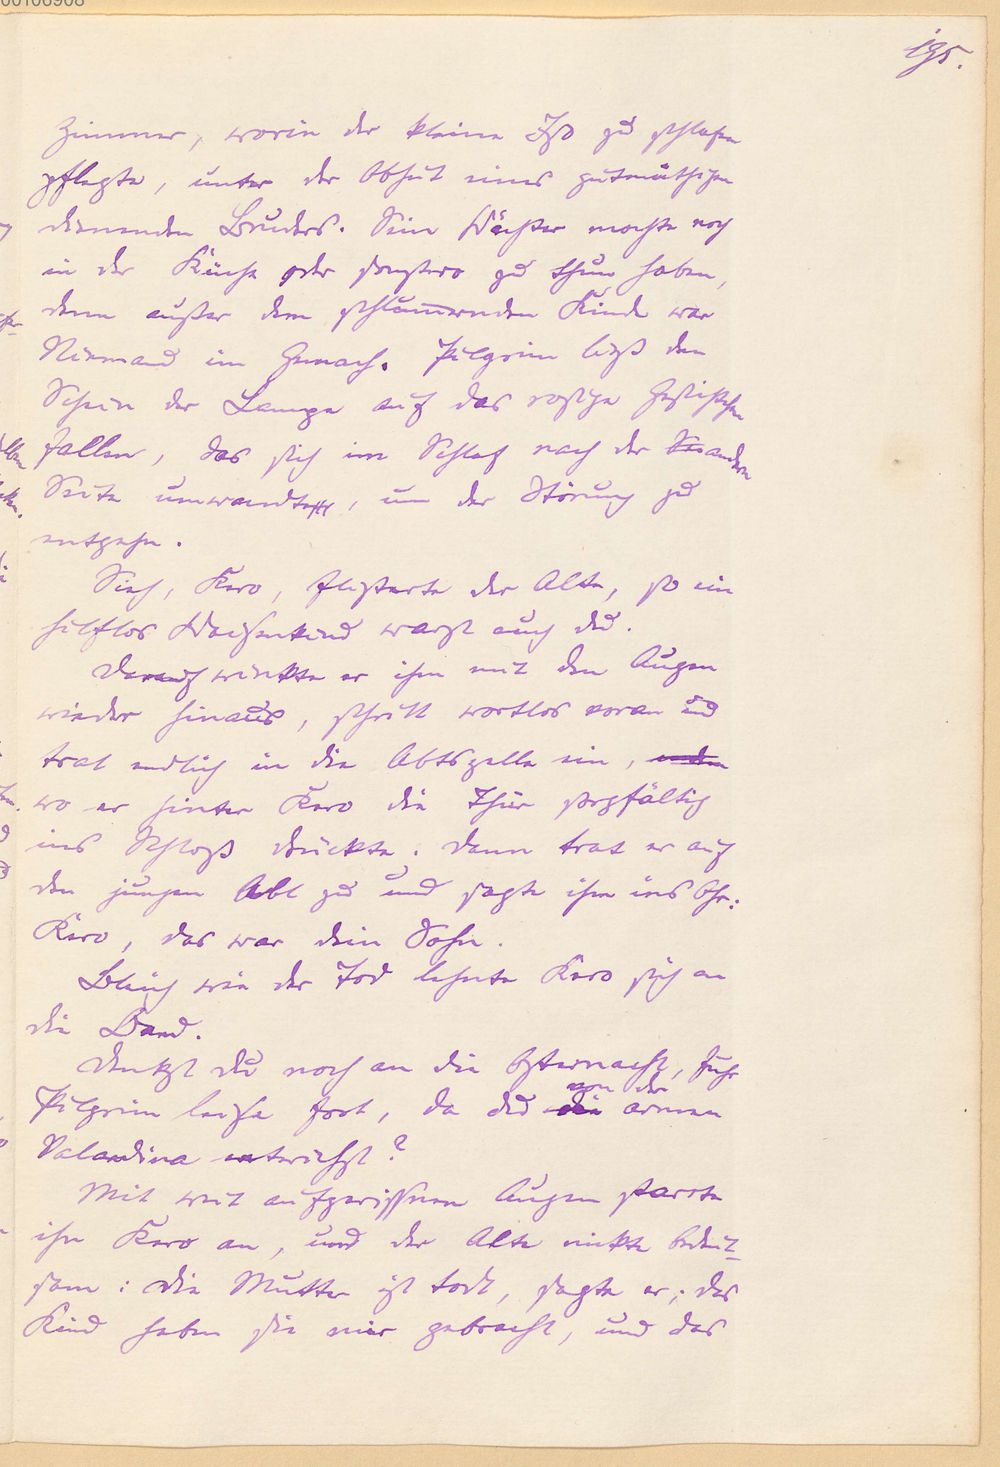 195.
Zimmer, worin der kleine Iso zu schlafen
pflegte, unter der Obhut eines gutmüthigen
dienenden Bruders. Sein Wächter mochte noch
in der Küche oder sonstwo zu thun haben,
denn außer dem schlum̅ernden Kinde war
Niemand im Gemach. Pilgrim ließ den
Schein der Lampe auf das rosige Gesichtchen
fallen, das sich im Schlaf nach der andern
Seite umwandte, um der Störung zu
entgehn.
Sieh, Kero, flüsterte der Alte, so ein
hilflos Waisenkind warst auch du.
Darauf winkte er ihm mit den Augen
wieder hinaus, schritt wortlos voran und
trat endlich in die Abtszelle ein,
wo er hinter Kero die Thür sorgfältig
ins Schloß drückte. Dann trat er auf
den jungen Abt zu und sagte ihm ins Ohr:
Kero, das war dein Sohn.
Bleich wie der Tod lehnte Kero sich an
die Wand.
Denkst du noch an die Osternacht, fuhr
von der
Pilgrim leise fort, da du die armen
Valandina entwichst?
Mit weit aufgerissnen Augen starrte
ihn Kero an, und der Alte nickte bedeut-
sam: Die Mutter ist todt, sagte er; das
Kind haben sie mir gebracht, und das